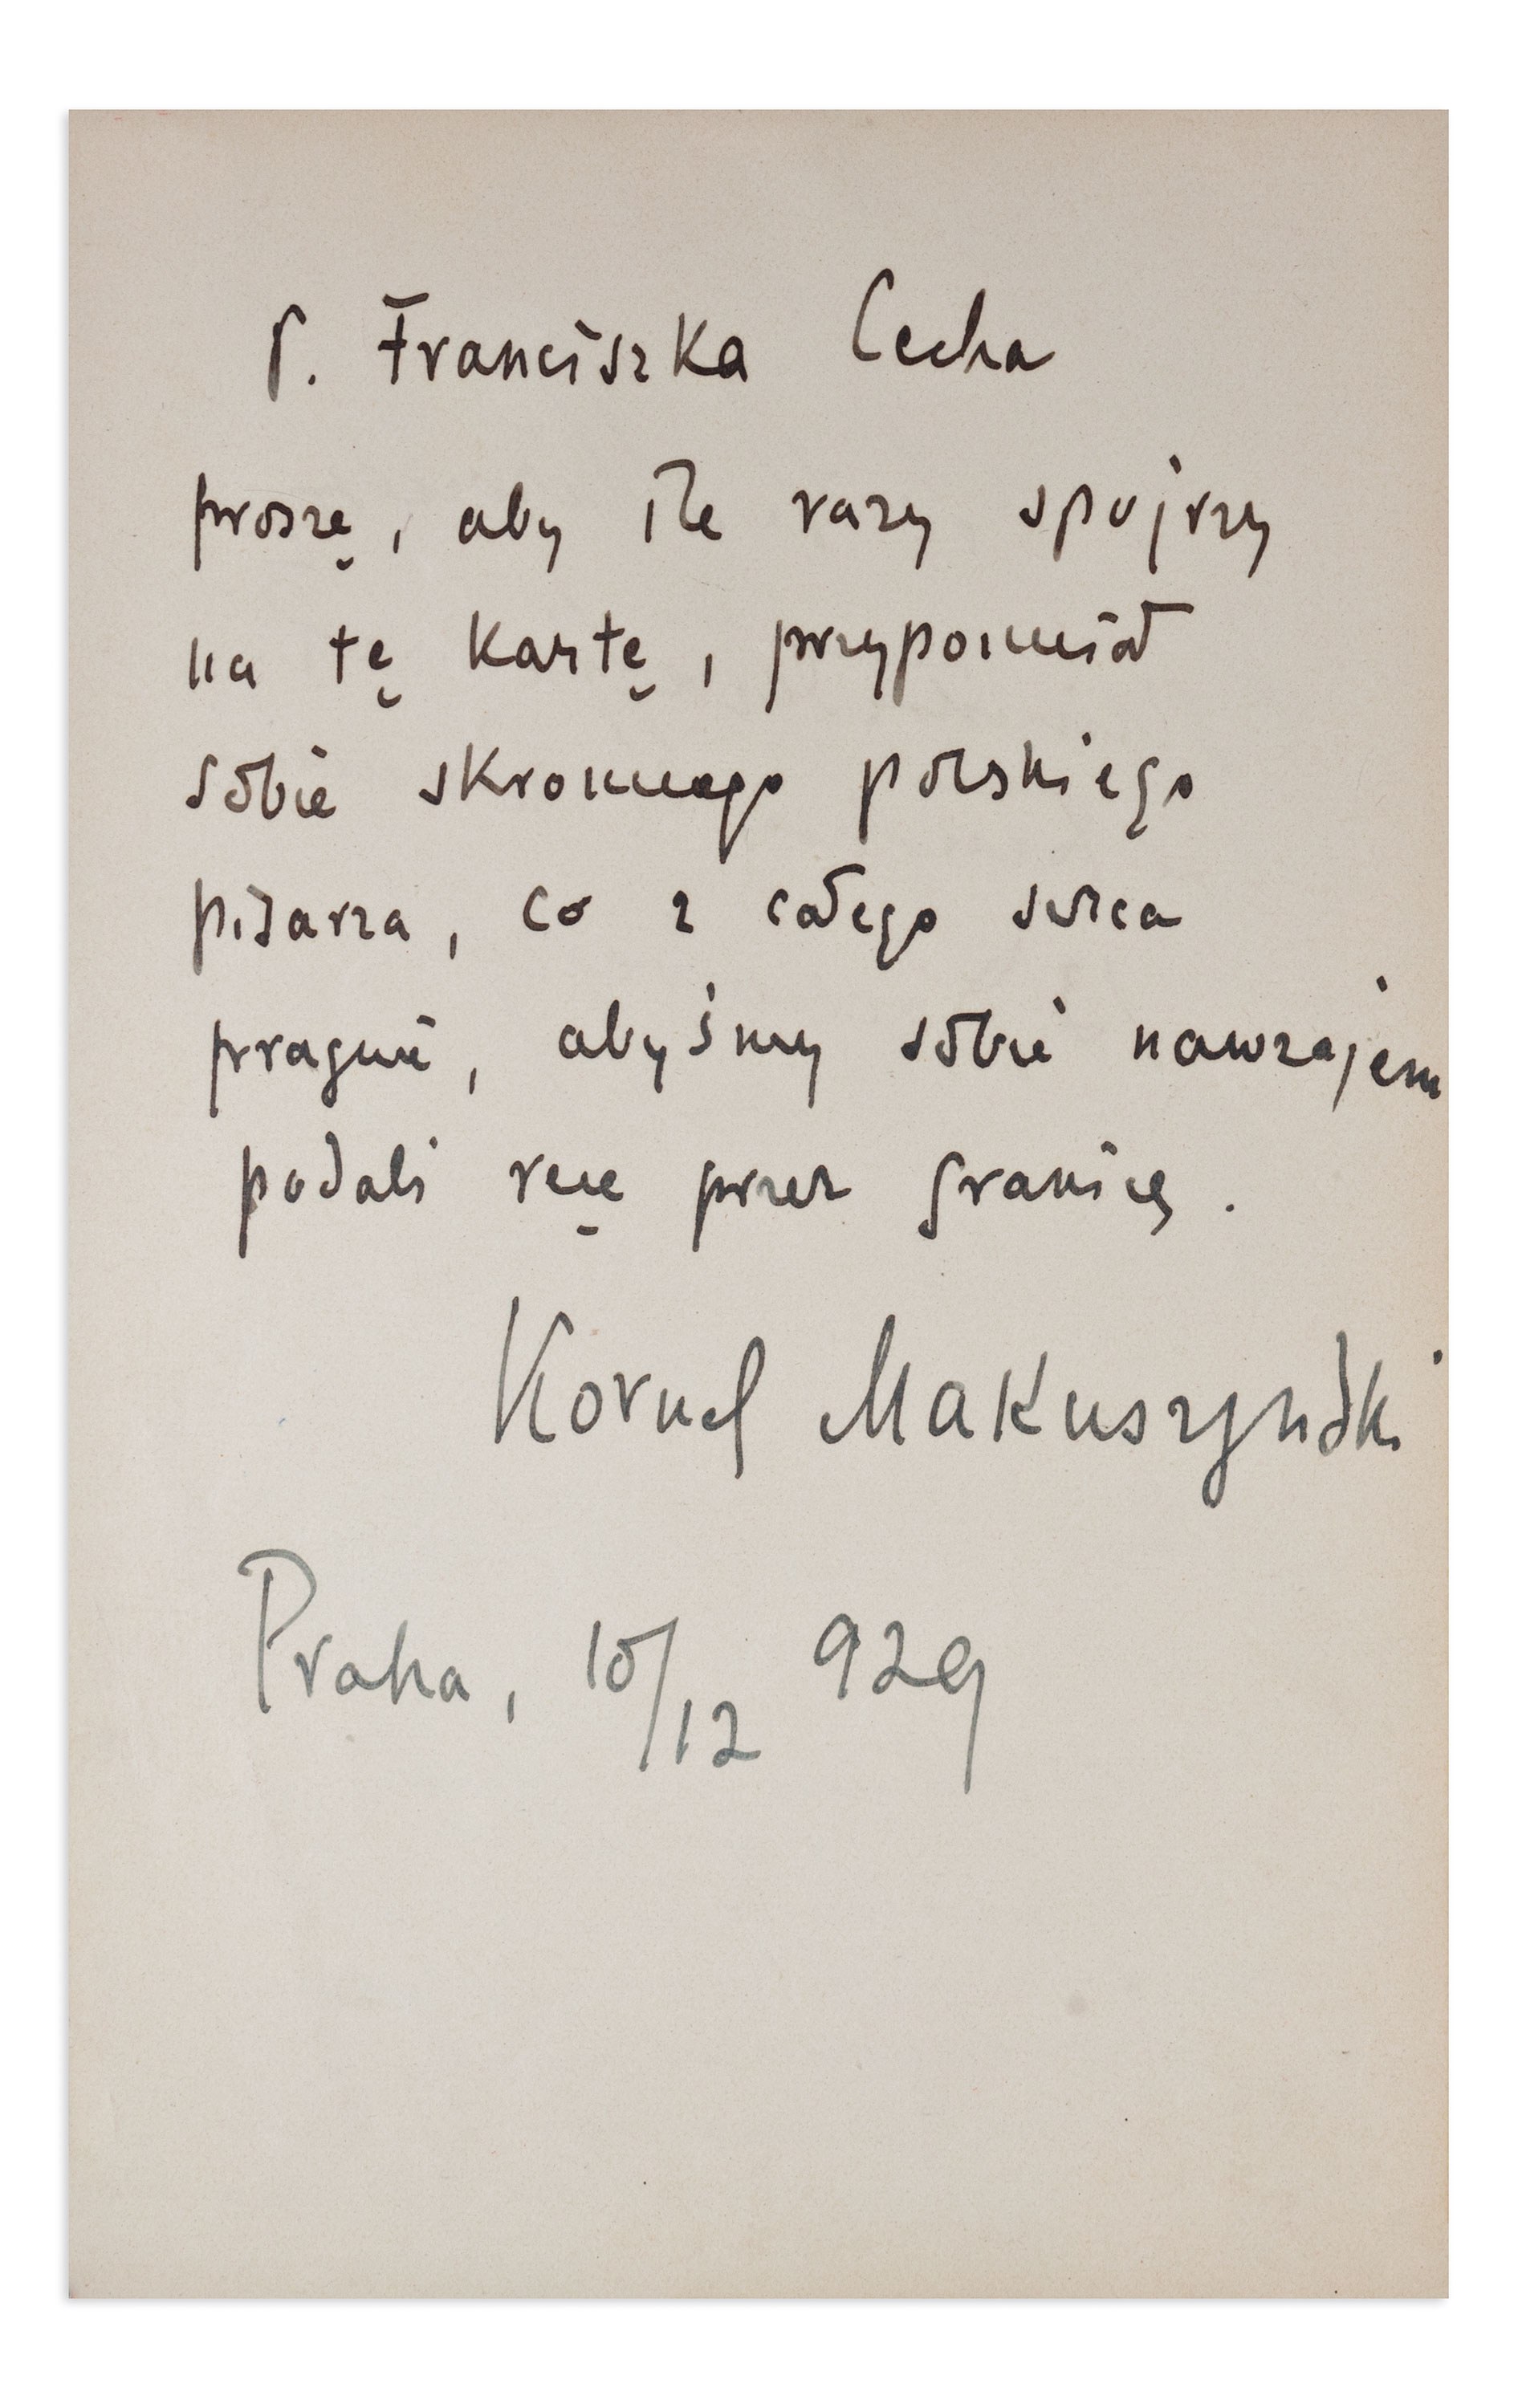 P. Franciszka Cecha
proszę, aby ile razy spojrzy
na tę kartę, przypomniał
sobie skromnego polskiego
pisarza, co z całego serca
pragnie, abyśmy sobie nawzajem
podali ręce przez granicę.
Kornel Makuszyński
Praha, 10/12 929